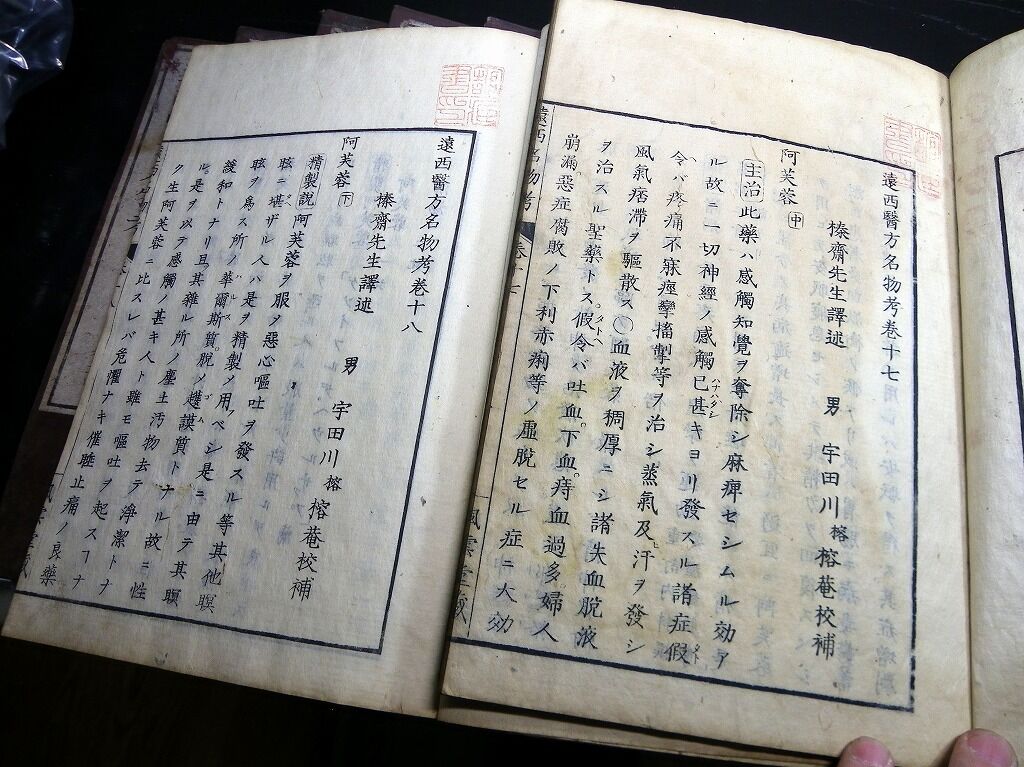 遠西醫方名物考卷十七
榛齋先生譯述 男 宇田川 榕 榕菴校補
阿芙蓉 中
主治 此藥ハ感觸知覺ヲ奪除シ麻痺セシムル効ア
ル故ニ一切神經ノ感觸已甚キヨリ發スル諸症假
令バ疼痛不寐痙攣搐掣等ヲ治シ蒸氣及汗ヲ發シ
風氣痞滞ヲ驅散ス○血液ヲ稠厚ニシ諸失血脱液
ヲ治スル聖藥トス假令バ吐血下血痔血過多婦人
崩漏惡症腐敗ノ下利赤痢等ノ虚脱セル症ニ大効
遠西名物考 卷十七 風雲堂蔵
遠西醫方名物考卷十八
榛齋先生譯述 男 宇田川 榕 榕菴校補
阿芙蓉 下
精製説 阿芙蓉ヲ服ヲ惡心嘔吐ヲ發スル等其他瞑
眩ニ堪ザル人ハ是ヲ精製メ用フベシ是ニ由テ其瞑
眩ヲ爲ス所ノ華爾斯質脱ノ護謨質トナル故ニ性
緩和トナリ且其雜ル所ノ塵土汚物去テ淨潔ト
ル是ヲ以テ感觸ノ甚キ人ト雖モ嘔吐ヲ起スヿナ
ク生阿芙蓉ニ比スレバ危懼ナキ催睡止痛ノ良藥
風雲堂蔵